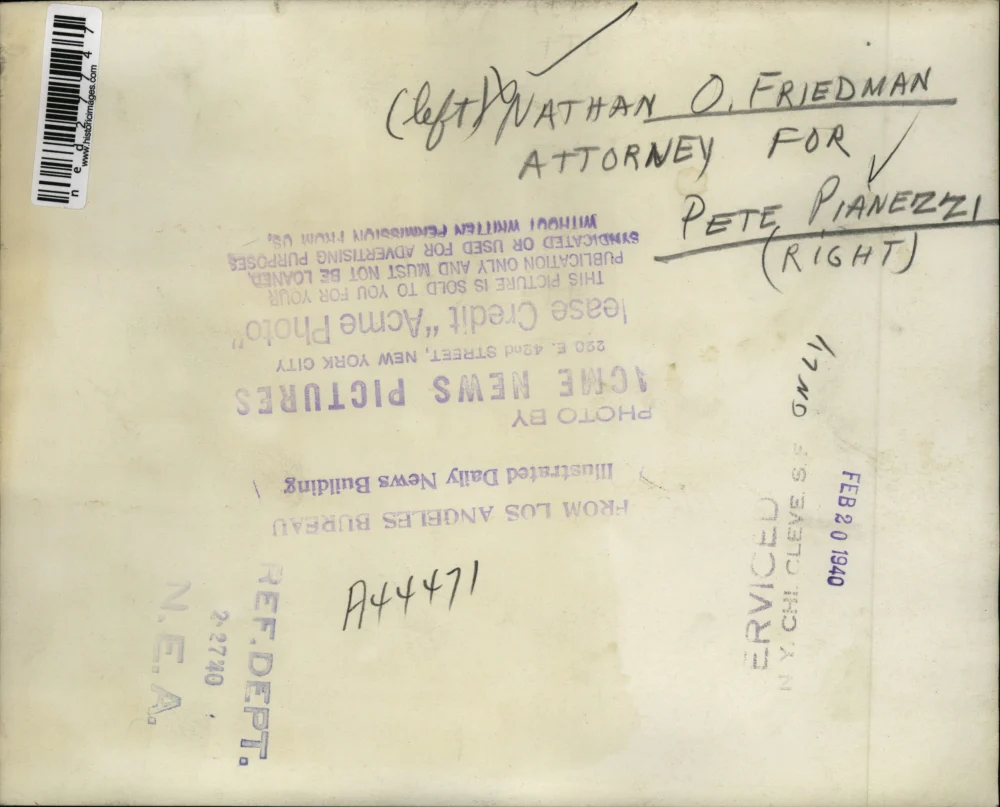 (left) NATHAN O. FRIEDMAN
ATTORNEY FOR
PETE PIANEZZI
(RIGHT)
ned27747
www.historicimages.com
PHOTO BY
ACME NEWS PICTURES
220 E. 42nd STREET, NEW YORK CITY
lease Credit "Acme Photo"
THIS PICTURE IS SOLD TO YOU FOR YOUR
PUBLICATION ONLY AND MUST NOT BE LOANED,
SYNDICATED OR USED FOR ADVERTISING PURPOSES
WITHOUT WRITTEN PERMISSION FROM US.
FROM LOS ANGELES BUREAU
Illustrated Daily News Building
A44471
ERVICED
N Y. CHI. CLEVE. S.F.
FEB 20 1940
REF. DEPT.
2-27 40
N.E.A.